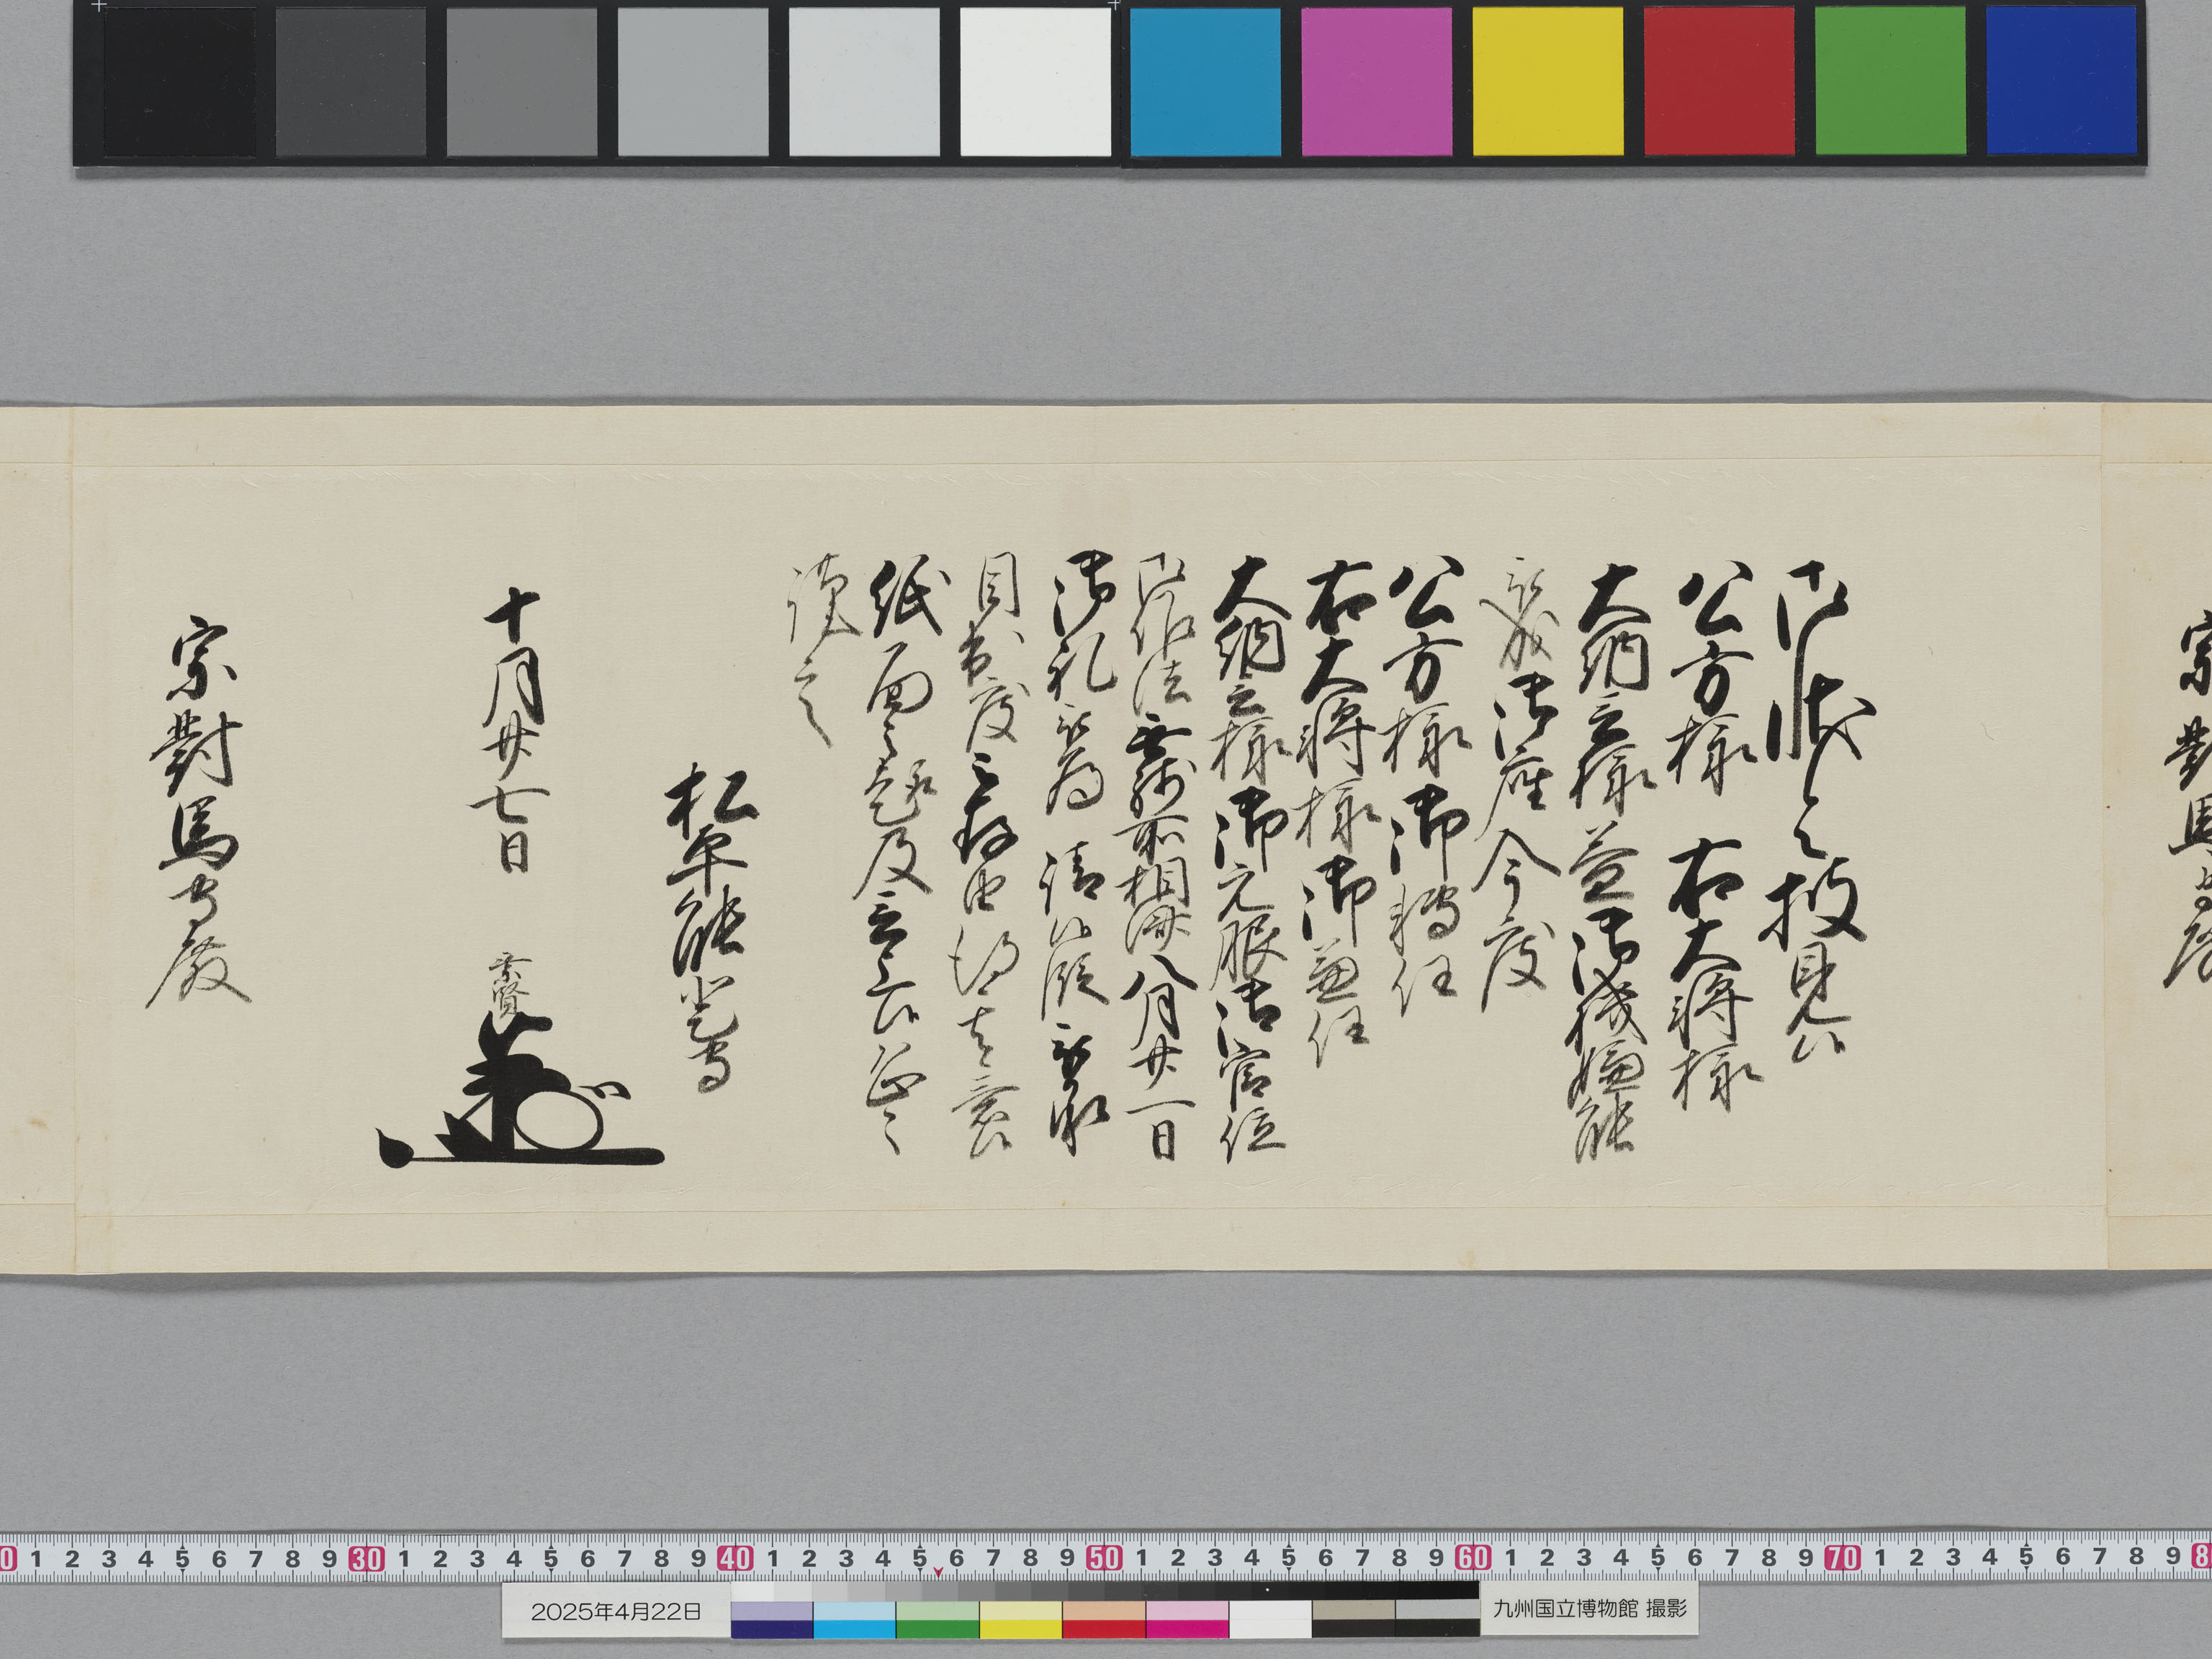 宗對馬守殿
御状令披見候
公方様 右大将様
大納言様益御機嫌能
被成御座今度
公方様御転任
右大将様御兼任
大納言様御元服御官位
御作法無残所相済八月廿一日
御礼被為 請候段被承
目出度被存由得其意候
紙面之趣及言上候恐々
謹言
松平能登守
十月廿七日 乗賢
宗對馬守殿
0 1 2 3 4 5 6 7 8 9 30 1 2 3 4 5 6 7 8 9 40 1 2 3 4 5 6 7 8 9 50 1 2 3 4 5 6 7 8 9 60 1 2 3 4 5 6 7 8 9 70 1 2 3 4 5 6 7 8 9 8
2025年4月22日
九州国立博物館 撮影